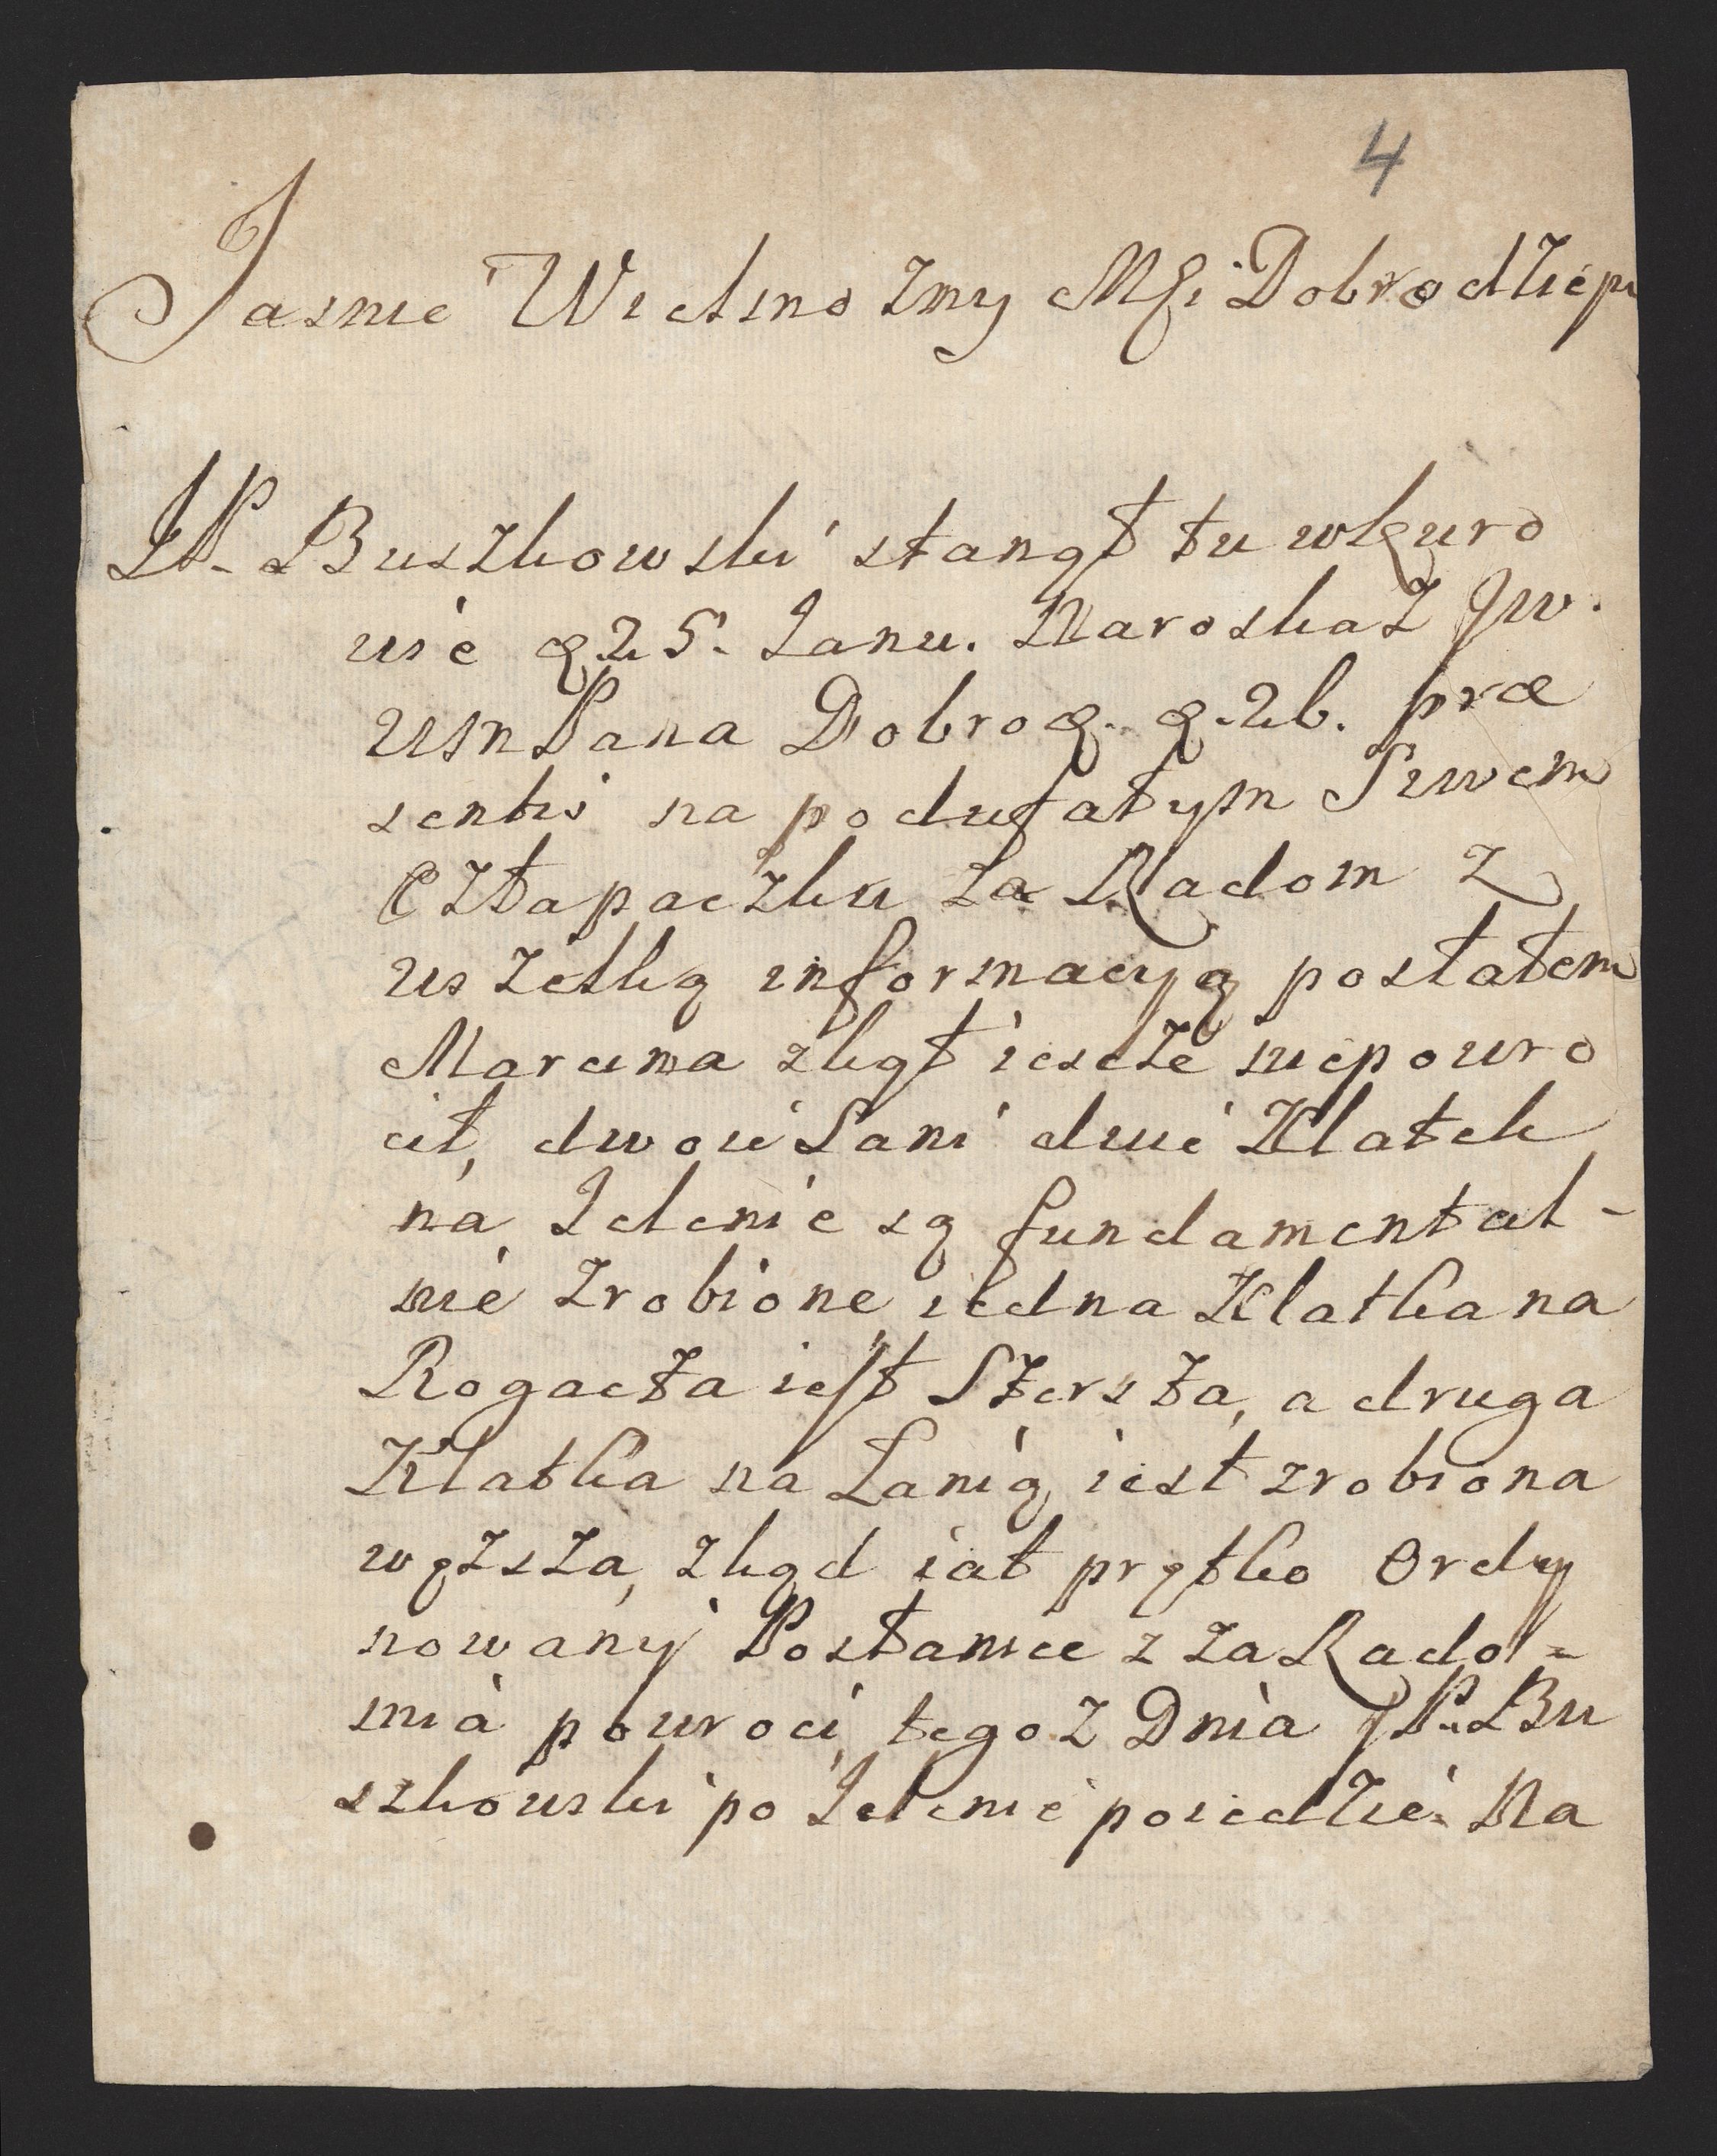 4
Jasnie Wielmozny Mći Dobrodzieiu
JP. Buszkowski stanął tu w Kuro
wie d. 25. Janu. Na roskaz Jw.
WmPana Dobrod. d. 26. præ
sentis na podufałym
Człapaczku za Radom z
wszelką informacyą posłałem
Marcina zkąd iescze niepowro
cił, dwoie Sani dwie Klatek
na Jelenie są fundamental-
nie zrobione, iedna Klatka na
Rogacza iest Szersza, a druga
Klatka na Łanią, iest zrobiona
węzsza, zkąd iak prętko Ordy
nowany Posłaniec z za Rado=
mia powroci, tegoz Dnia JP. Bu
szkowski po Jelenie poiedzie. Na